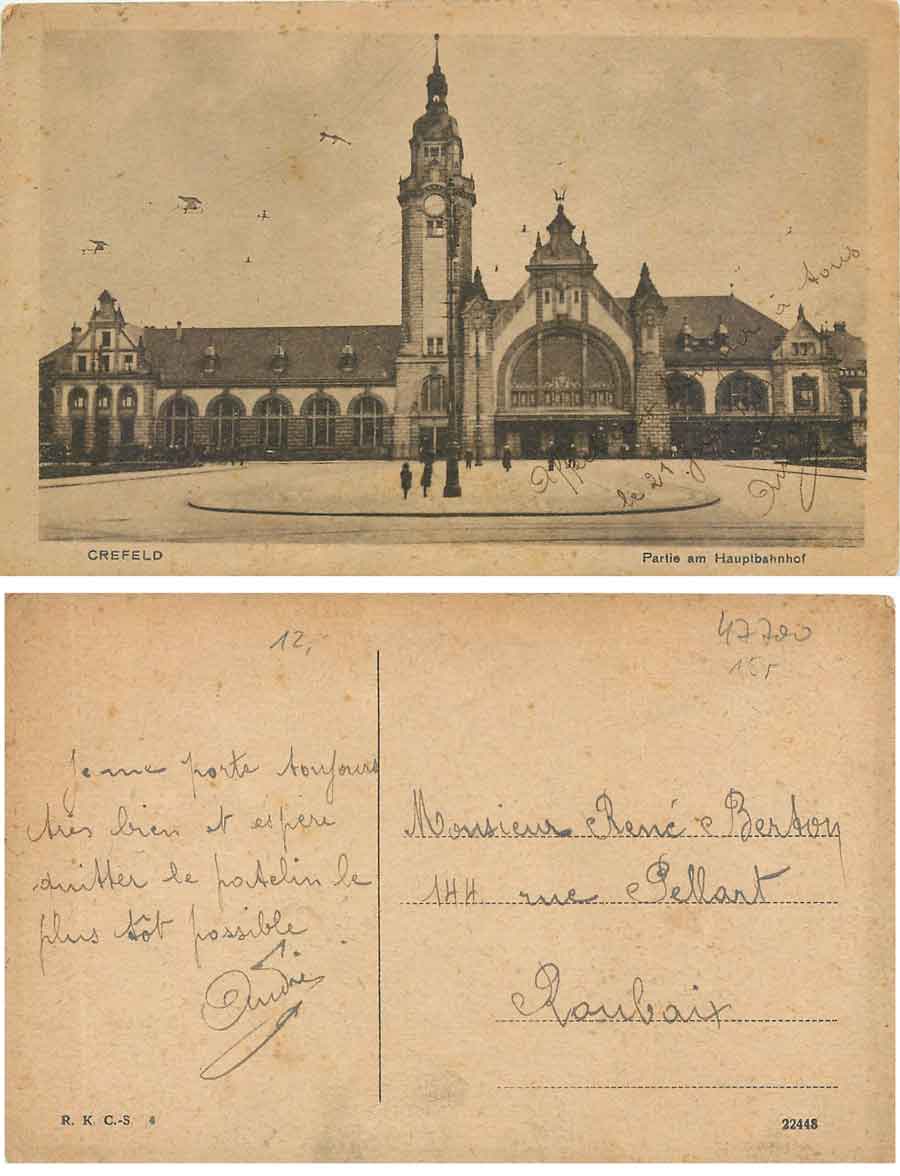 à tous
le 21
CREFELD
Partie am Hauptbahnhof
12,
47700
Je me porte toujours
très bien et espère
quitter le patelin le
plus tôt possible
André
Monsieur René Berton
144 rue Pellart
Roubaix
R. K. C.-S. 4
22448